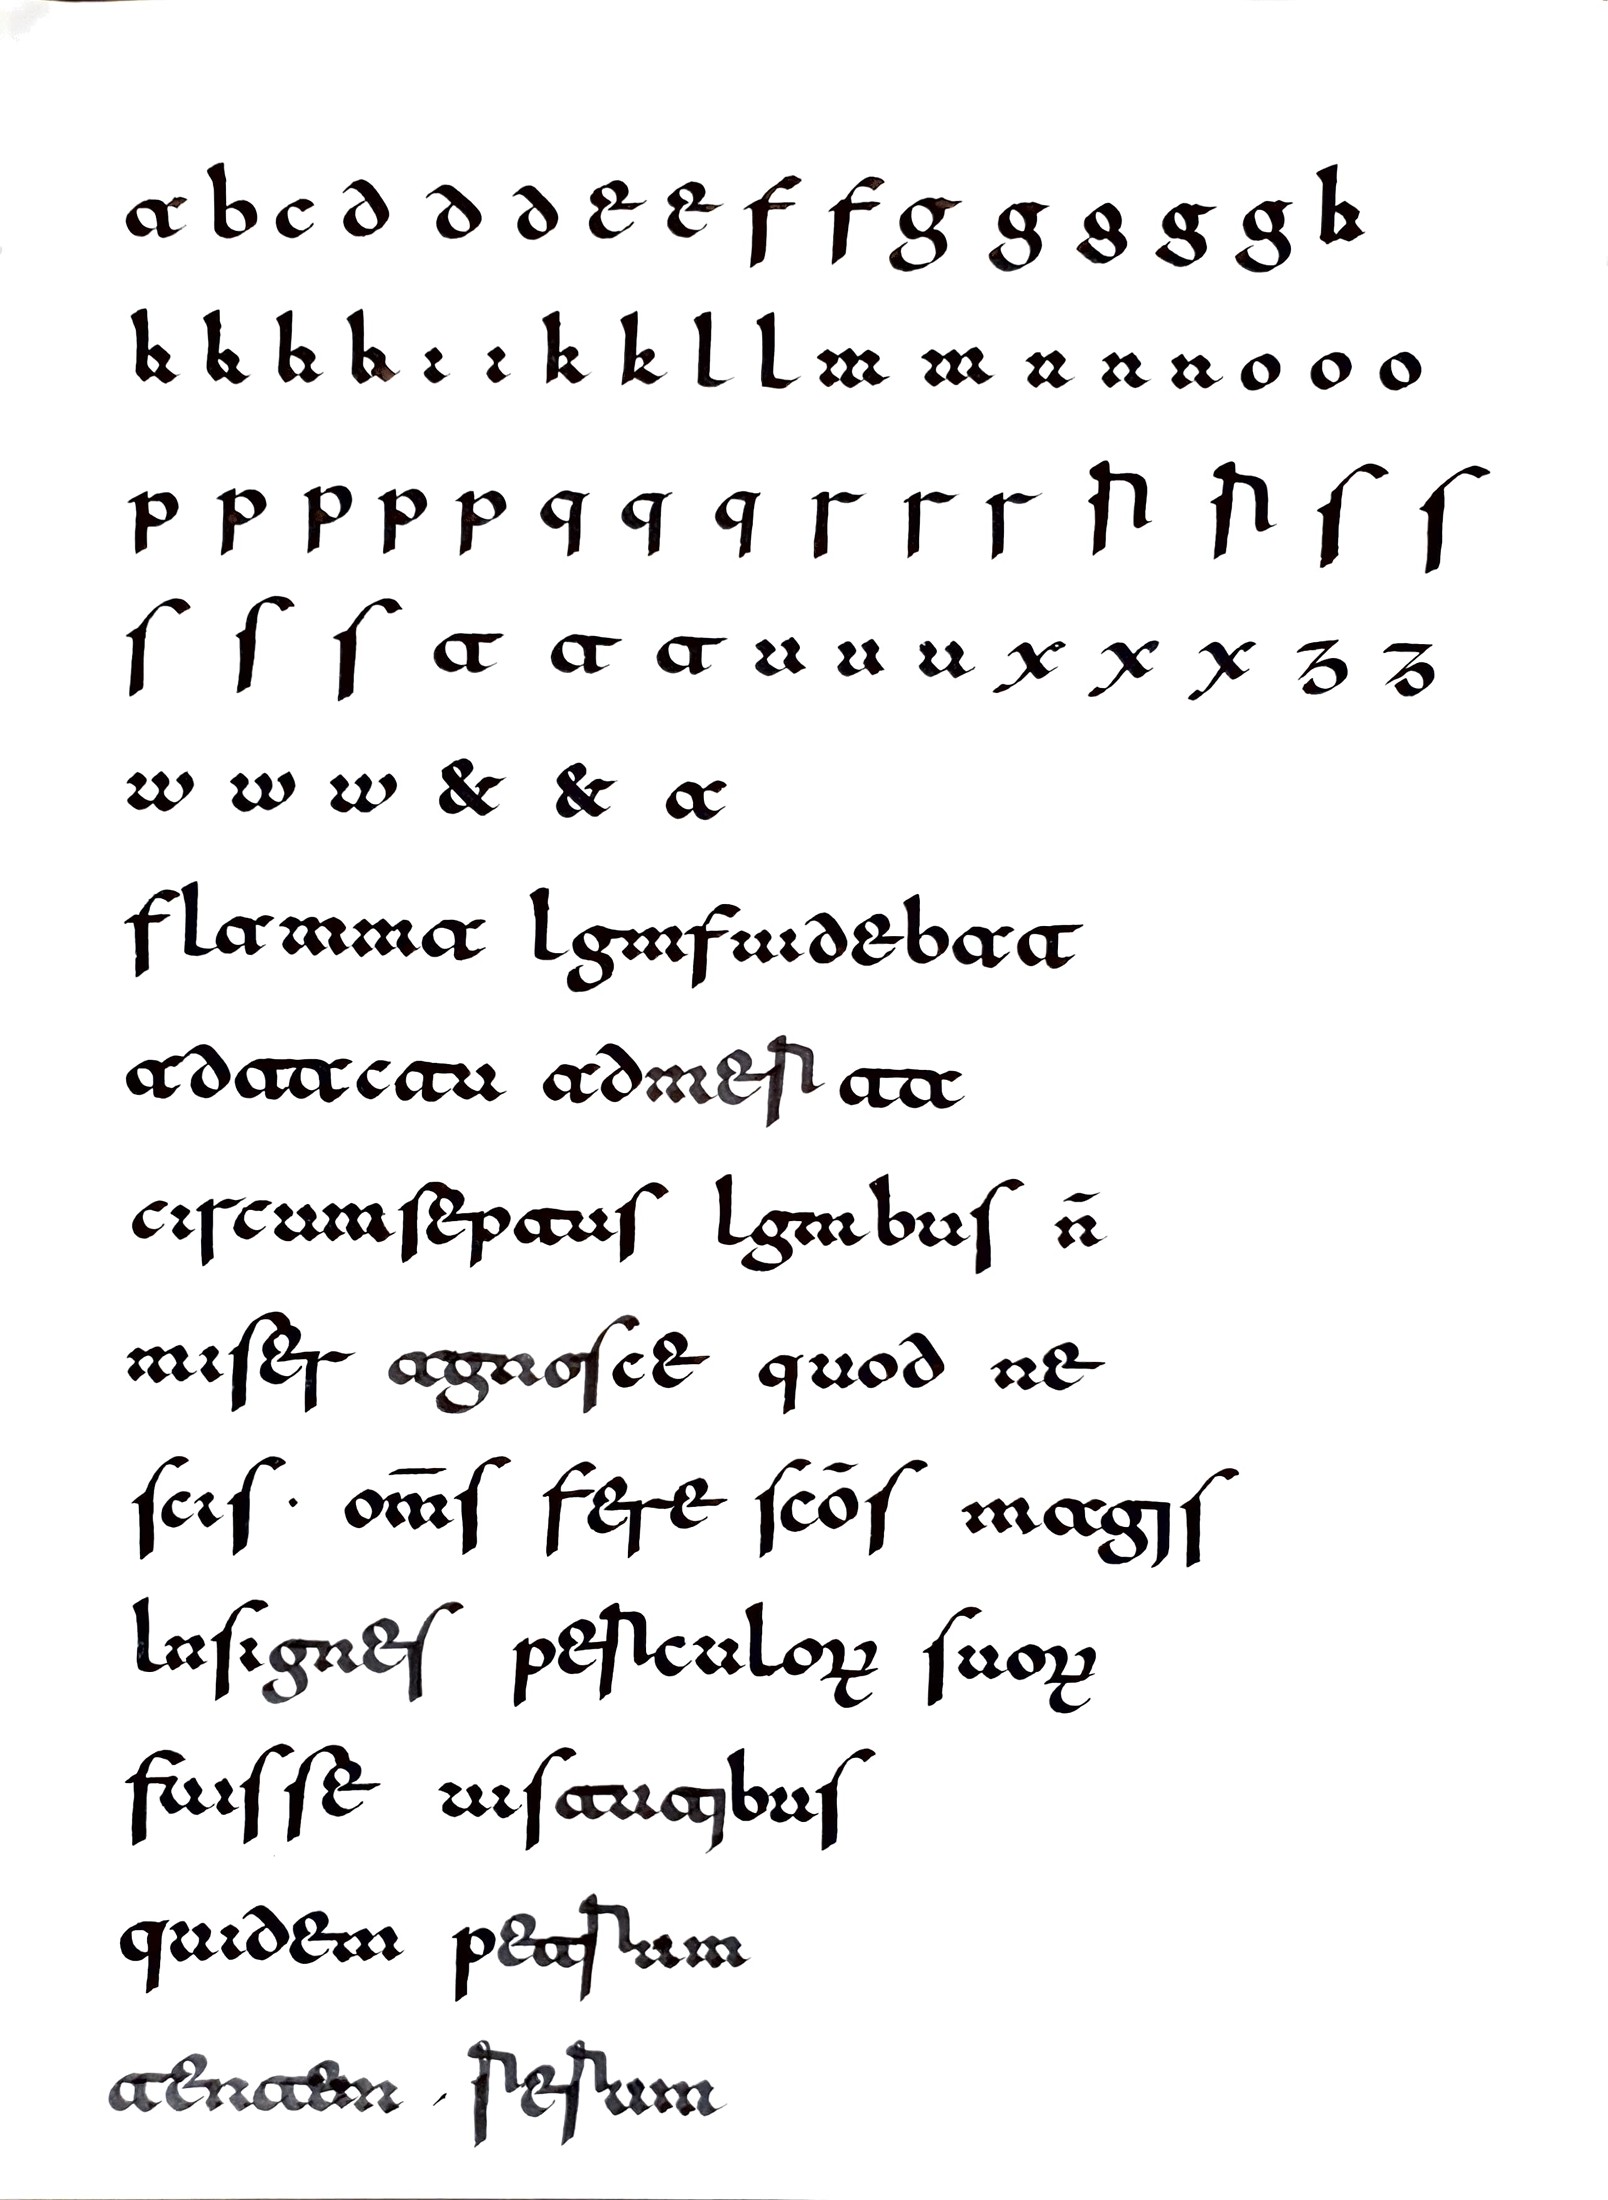 a b c d d d e e f f g g g g g h
h h h h i i k k l l m m n n n o o o
p p p p p q q q r r r ri ri ſ ſ
ſ ſ ſ t t t u u u x x x z z
w w w & & a
flamma Ignifuidebat
adtactu admerita
circumſeptuſ Ignibuſ n̄
miſer agnoſce quod ne
ſciſ · om̄ſ fere ſcōſ magiſ
Inſigneſ periculoꝝ ſuoꝝ
fuiſſe uiſtutibuſ
quidem petrium